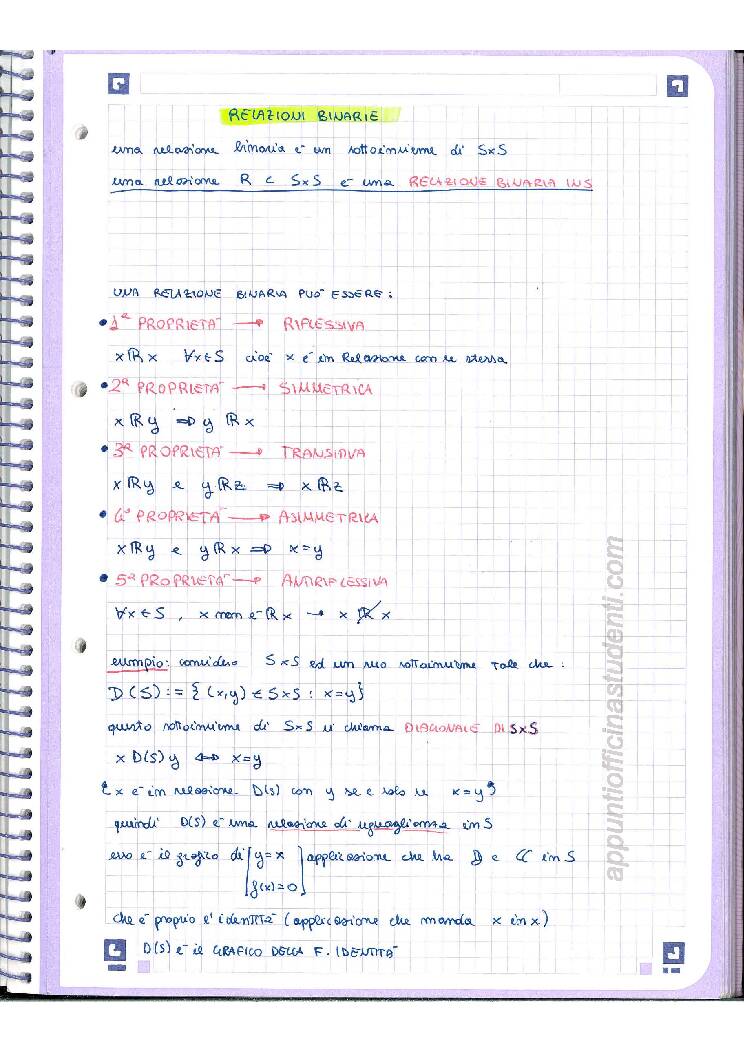 RELAZIONI BINARIE
una relazione binaria è un sottoinsieme di S×S
una relazione R ⊂ S×S è una RELAZIONE BINARIA IN S
UNA RELAZIONE BINARIA PUÒ ESSERE:
• 1ª PROPRIETÀ → RIFLESSIVA
xRx ∀x∈S cioè x è in Relazione con se stessa
• 2ª PROPRIETÀ → SIMMETRICA
xRy ⇒ yRx
• 3ª PROPRIETÀ → TRANSITIVA
xRy e yRz ⇒ xRz
• 4ª PROPRIETÀ → ASIMMETRICA
xRy e yRx ⇒ x=y
• 5ª PROPRIETÀ → ANTIRIFLESSIVA
∀x∈S, x non è R x → x R̸ x
esempio: considero S×S ed un suo sottoinsieme tale che:
D(S) := {(x,y) ∈ S×S : x=y}
questo sottoinsieme di S×S si chiama DIAGONALE DI S×S
x D(S) y ⇔ x=y
{x è in relazione D(S) con y se e solo se x=y}
quindi D(S) è una relazione di uguaglianza in S
esso è il grafico di [y=x applicazione che ha D e C in S
f(x)=0]
che è proprio l'identità (applicazione che manda x in x)
D(S) è il GRAFICO DELLA F. IDENTITÀ
appuntiofficinastudenti.com